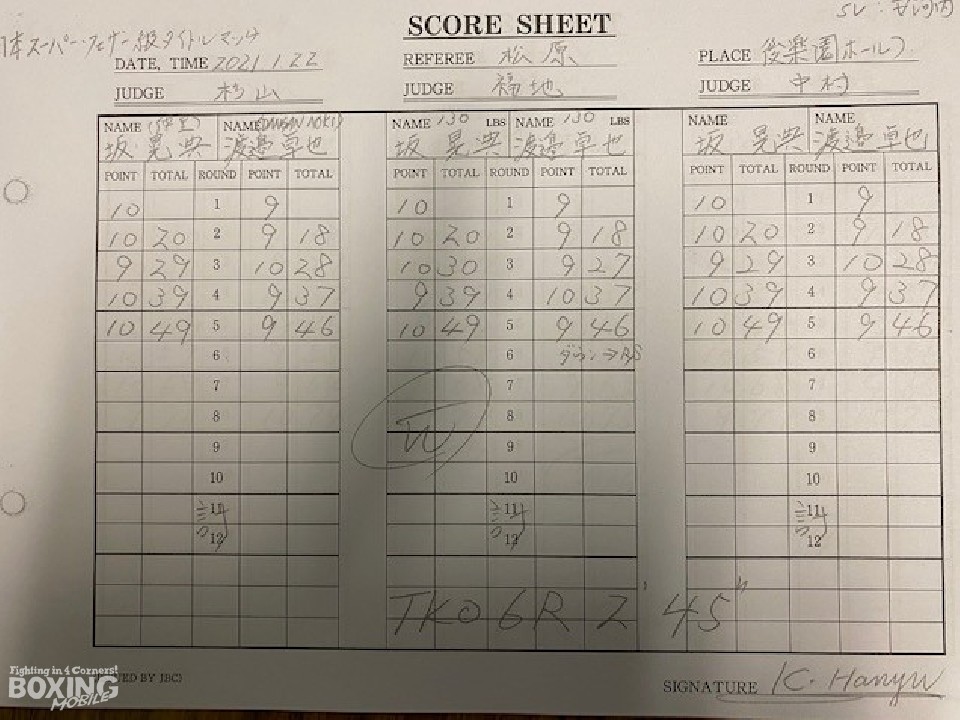 SCORE SHEET
日本スーパー・フェザー級タイトルマッチ
DATE, TIME 2021 1.22 REFEREE 松原 PLACE 後楽園ホール
JUDGE 杉山 JUDGE 福地 JUDGE 中村
NAME NAME NAME 130 LBS NAME 130 LBS NAME NAME
坂 晃典 渡邉卓也 坂 晃典 渡邉卓也 坂 晃典 渡邉卓也
POINT TOTAL ROUND POINT TOTAL POINT TOTAL ROUND POINT TOTAL POINT TOTAL ROUND POINT TOTAL
10 1 9 10 1 9 10 1 9
10 20 2 9 18 10 20 2 9 18 10 20 2 9 18
9 29 3 10 28 10 30 3 9 27 9 29 3 10 28
10 39 4 9 37 9 39 4 10 37 10 39 4 9 37
10 49 5 9 46 10 49 5 9 46 10 49 5 9 46
6 6 ダウン→ 6
7 7 7
8 8 8
9 W 9 9
10 10 10
11 11 11
12 12 12
TKO 6R 2' 45"
BY JBC)
SIGNATURE K. Hanyu
Fighting in 4 Corners!
BOXING
MOBILE